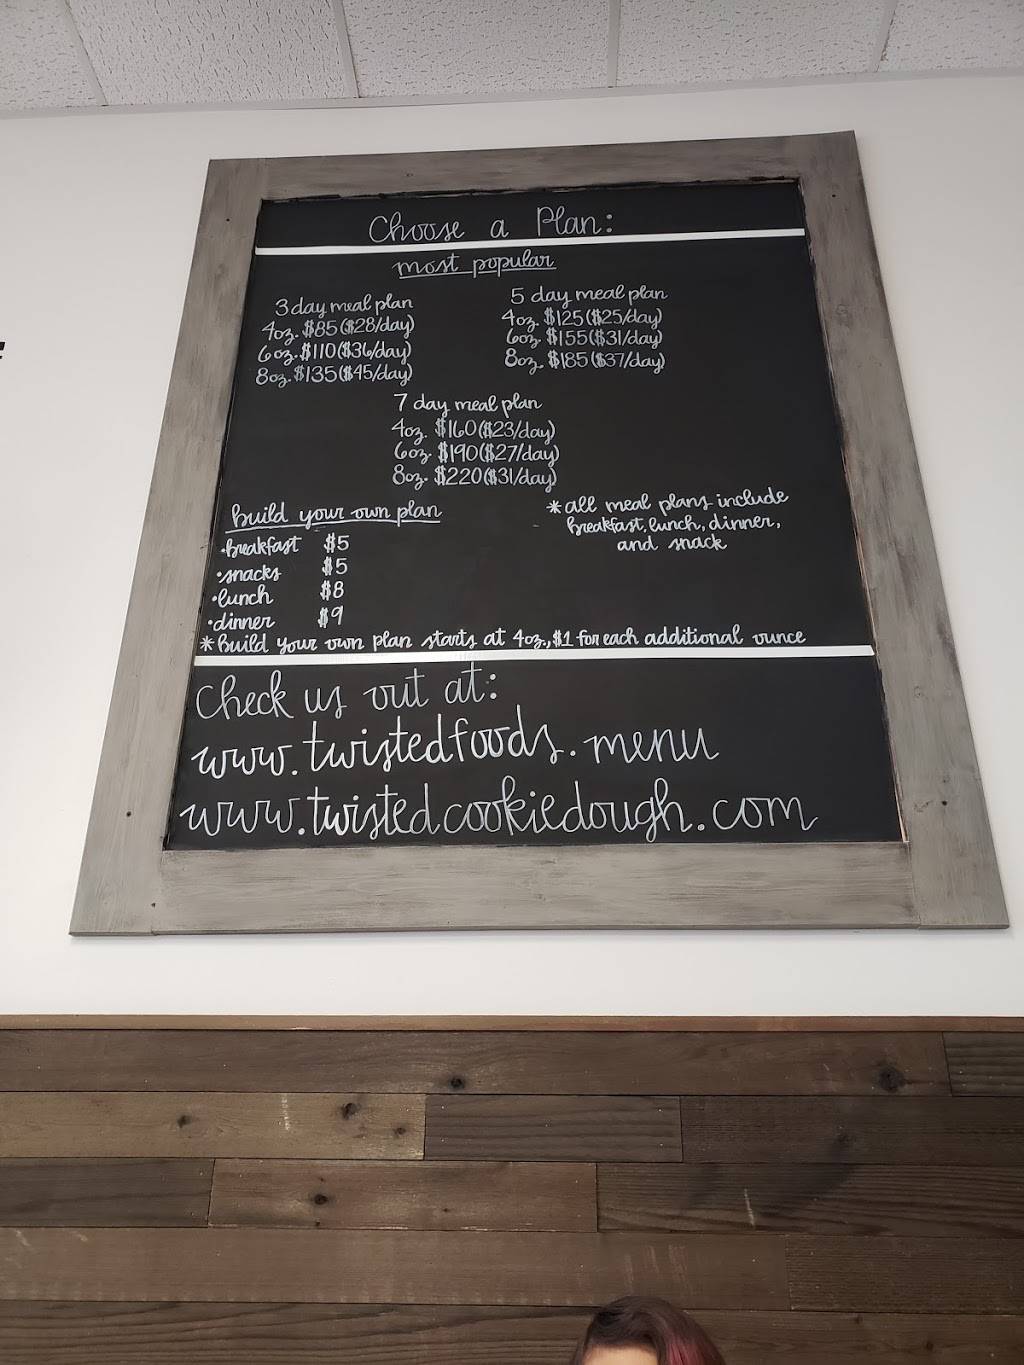 Choose a Plan:
most popular
3 day meal plan
4oz. $85($28/day)
6oz. $110($36/day)
8oz. $135($45/day)
5 day meal plan
4oz. $125($25/day)
6oz. $155($31/day)
8oz. $185($37/day)
7 day meal plan
4oz. $160($23/day)
6oz. $190($27/day)
8oz. $220($31/day)
*all meal plans include
breakfast, lunch, dinner,
and snack
build your own plan
•breakfast $5
•snacks $5
•lunch $8
•dinner $9
*Build your own plan starts at 4oz., $1 for each additional ounce
Check us out at:
www.twistedfoods.menu
www.twistedcookiedough.com